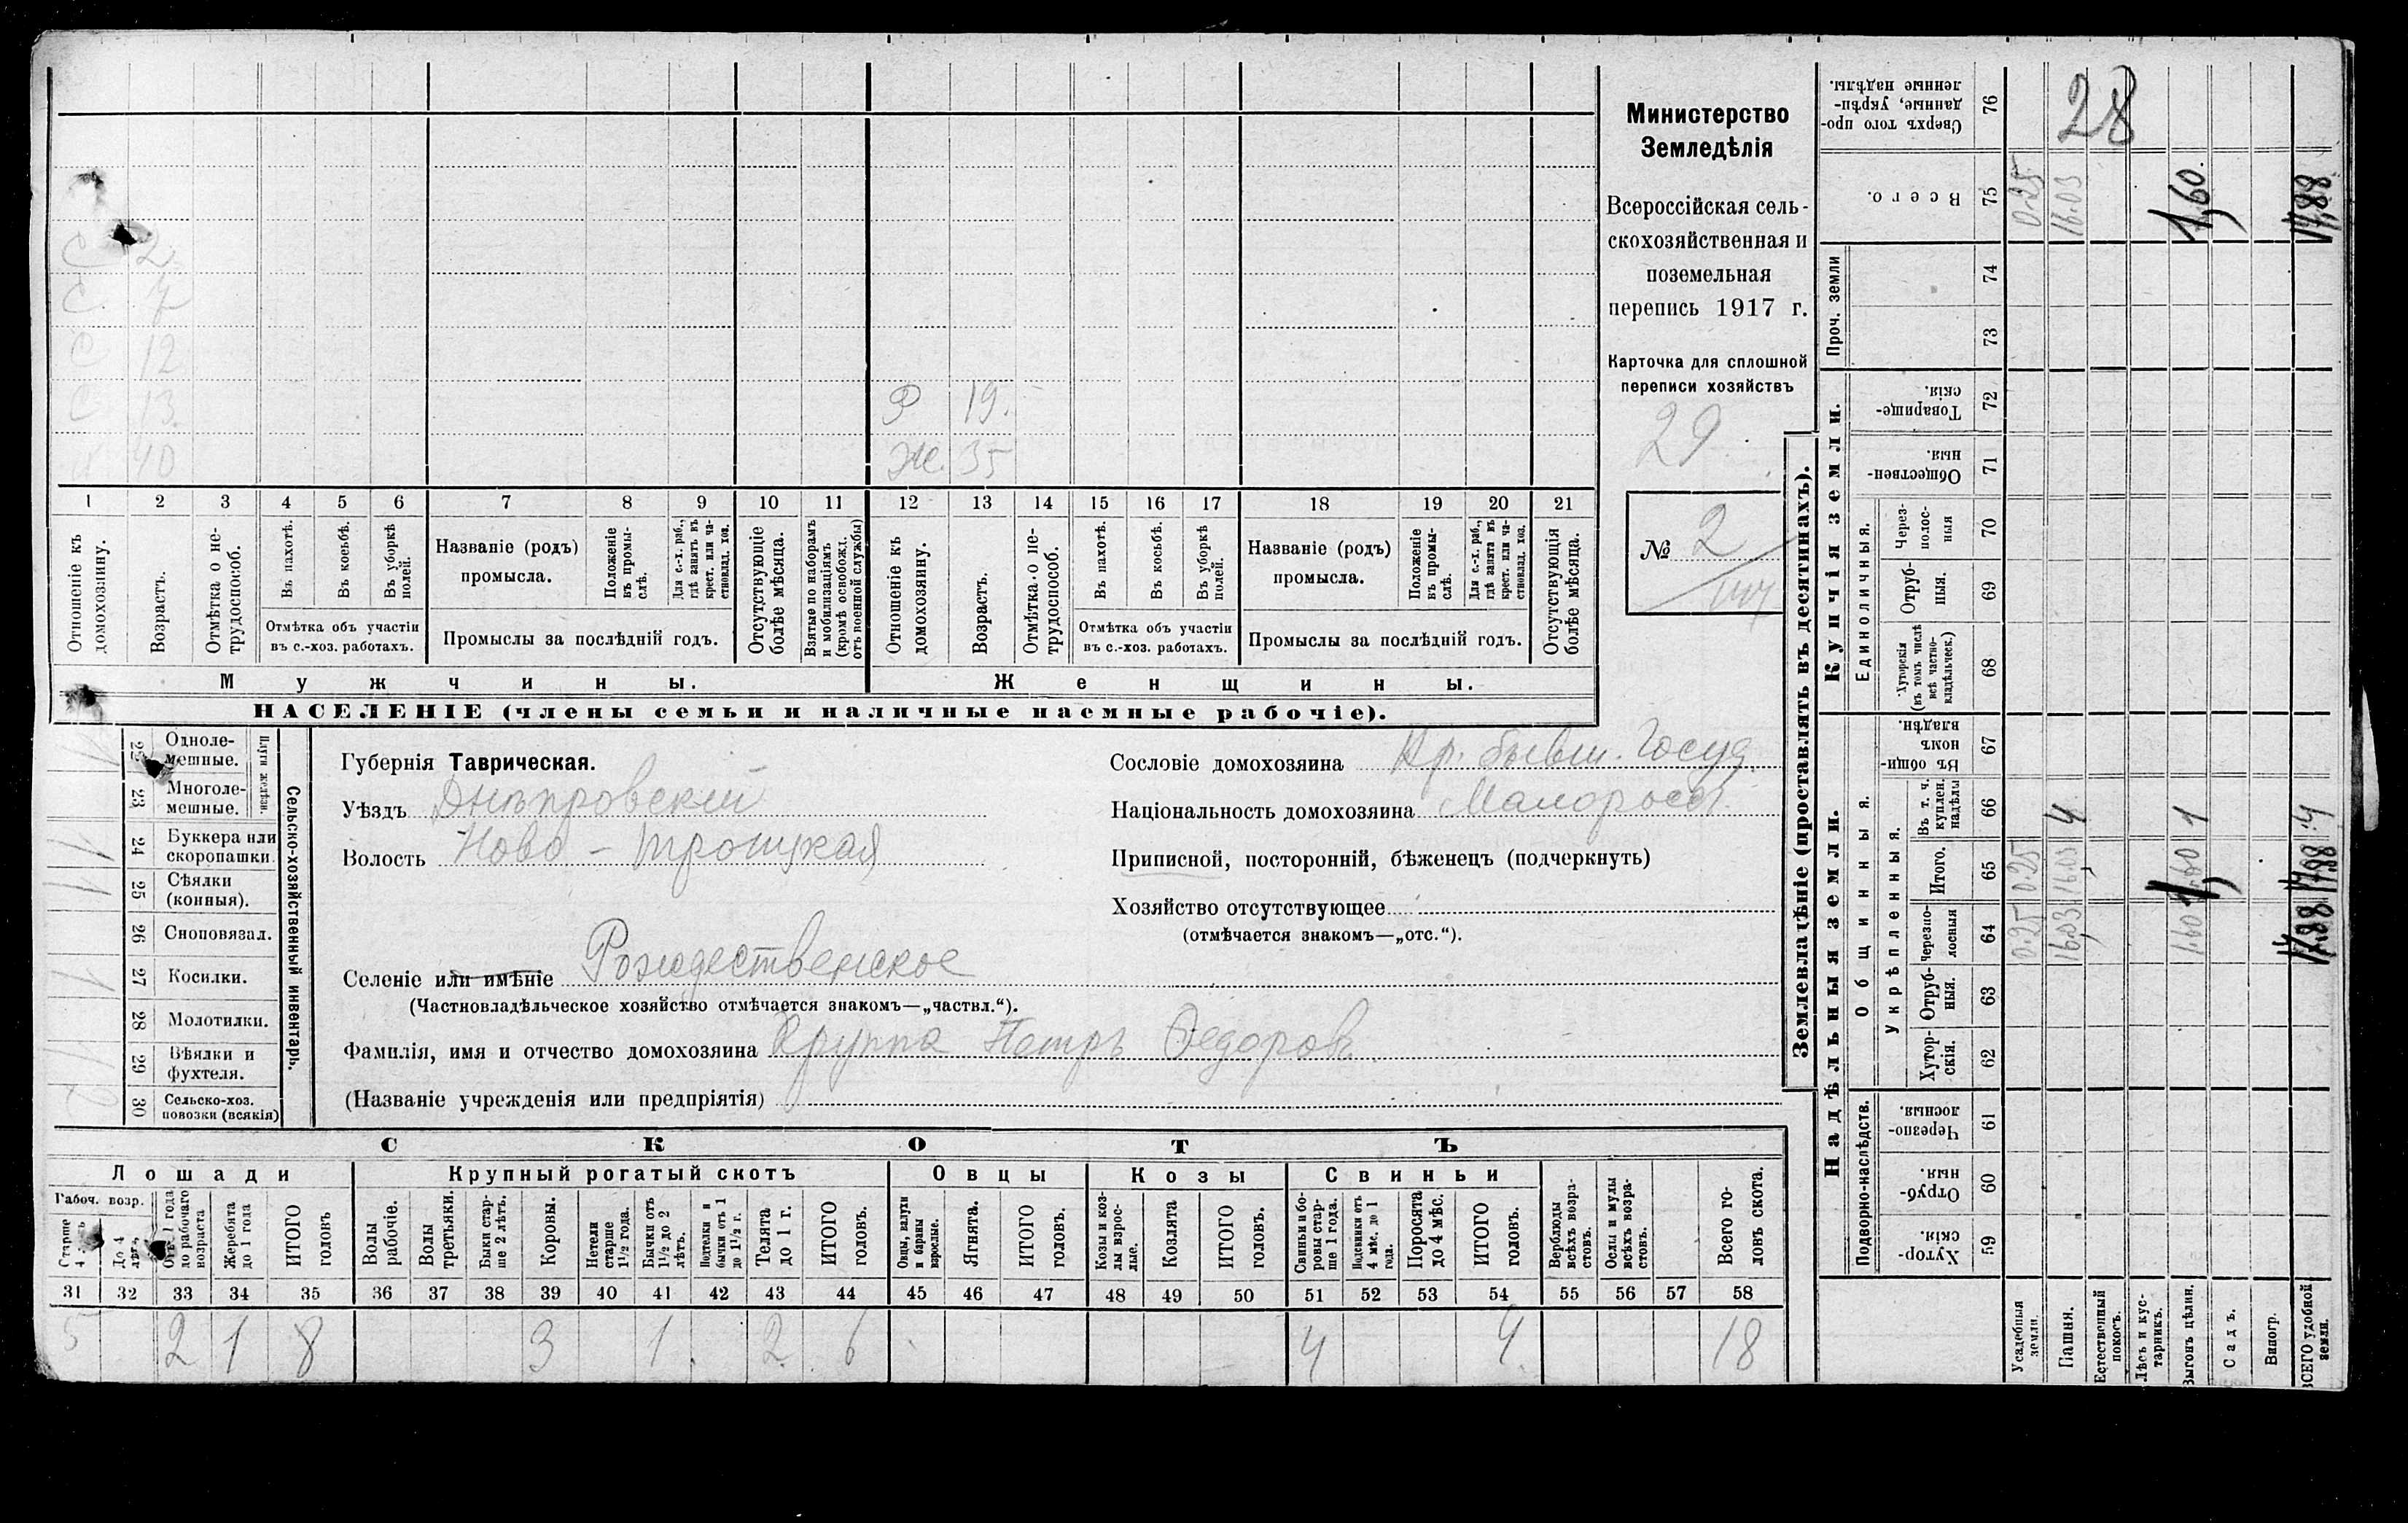 Министерство
Земледѣлія
Всероссійская сель-
скохозяйственная и
поземельная
перепись 1917 г.
Карточка для сплошной
переписи хозяйствъ
29
№ 2
С 2
С 7
С 12
С 13
40
Р 19.
Ж. 35
1 2 3 4 5 6 7 8 9 10 11 12 13 14 15 16 17 18 19 20 21
Отношеніе къ домохозяину.
Возрастъ.
Отмѣтка о не-трудоспособ.
Въ пахотѣ.
Въ косьбѣ.
Въ уборкѣ полей.
Отмѣтка объ участіи
въ с.-хоз. работахъ.
Названіе (родъ)
промысла.
Положеніе въ промы-слѣ.
Для с.-х. раб., гдѣ занятъ въ крест. или ча-стновлад. хоз.
Промыслы за послѣдній годъ.
Отсутствующіе болѣе мѣсяца.
Взятые по наборамъ и мобилизаціямъ (кромѣ освобожд. отъ военной службы)
Отношеніе къ домохозяину.
Возрастъ.
Отмѣтка о не-трудоспособ.
Въ пахотѣ.
Въ косьбѣ.
Въ уборкѣ полей.
Отмѣтка объ участіи
въ с.-хоз. работахъ.
Названіе (родъ)
промысла.
Положеніе въ промы-слѣ.
Для с.-х. раб., гдѣ занята въ крест. или ча-стновлад. хоз.
Промыслы за послѣдній годъ.
Отсутствующія болѣе мѣсяца.
Мужчины.
Женщины.
НАСЕЛЕНІЕ (члены семьи и наличные наемные рабочіе).
Губернія Таврическая.
Уѣздъ Днѣпровскій
Волость Ново-Троицкая
Селеніе или имѣніе Рождественское
(Частновладѣльческое хозяйство отмѣчается знакомъ—„частвл.“).
Фамилія, имя и отчество домохозяина Круппа Петръ Федоров.
(Названіе учрежденія или предпріятія)
Сословіе домохозяина Кр. бывш. Госуд.
Національность домохозяина Малоросс.
Приписной, посторонній, бѣженецъ (подчеркнуть)
Хозяйство отсутствующее
(отмѣчается знакомъ—„отс.“).
Сельско-хозяйственный инвентарь.
Плуги желѣзн.
22 Одноле-мешные.
23 Многоле-мешные.
24 Буккера или скоропашки. 1
25 Сѣялки (конныя). 1
26 Сноповязал.
27 Косилки. 1
28 Молотилки.
29 Вѣялки и фухтеля.
30 Сельско-хоз. повозки (всякія)
СКОТЪ
Лошади
Крупный рогатый скотъ
Овцы
Козы
Свиньи
Рабоч. возр.
Старше 4
До 4 лѣтъ
года до рабочаго возраста
Жеребята до 1 года
ИТОГО головъ
Волы рабочіе.
Волы третьяки.
Быки стар-ше 2 лѣтъ.
Коровы.
Нетели старше 1½ года.
Бычки отъ 1½ до 2 лѣтъ.
Подтелки и бычки отъ 1 до 1½ г.
Телята до 1 г.
ИТОГО головъ.
Овцы, валухи и бараны взрослые.
Ягнята.
ИТОГО головъ.
Козы и коз-лы взрос-лые.
Козлята
ИТОГО головъ.
Свиньи и бо-ровы стар-ше 1 года.
Подсвинки отъ 4 мѣс. до 1 года.
Поросята до 4 мѣс.
ИТОГО головъ.
Верблюды всѣхъ возра-стовъ.
Ослы и мулы всѣхъ возра-стовъ.
Всего го-ловъ скота.
31 32 33 34 35 36 37 38 39 40 41 42 43 44 45 46 47 48 49 50 51 52 53 54 55 56 57 58
5 2 1 8 3 1 2 6 4 4 18
Землевладѣніе (проставлять въ десятинахъ).
Купчія земли.
Надѣльныя земли.
Сверхъ того про-данные, укрѣп-ленные надѣлы. 76
28
Всего. 75 0.25 16.03 1,60. 17,88
Проч. земли 74
73
Товарище-скія. 72
Обществен-ныя. 71
Единоличныя.
Через-полос-ныя 70
Отруб-ныя. 69
Хуторскія (въ томъ числѣ всѣ частно-владѣльческ.) 68
Общинныя.
Въ общин-номъ владѣн. 67
Укрѣпленныя.
Въ т. ч. куплен. надѣлы 66 4 1
Итого. 65 0.25 16.03 1,60 17,88
Черезпо-лосныя 64 0.25 16.03 1.60 17,88
Отруб-ныя. 63
Хутор-скія. 62
Подворно-наслѣдств.
Черезпо-лосныя. 61
Отруб-ныя. 60
Хутор-скія. 59
Усадебныя земли.
Пашня.
Естественный покосъ.
Лѣсъ и кус-тарникъ.
Выгонъ цѣлин.
Садъ.
Виногр.
ВСЕГО удобной земли.